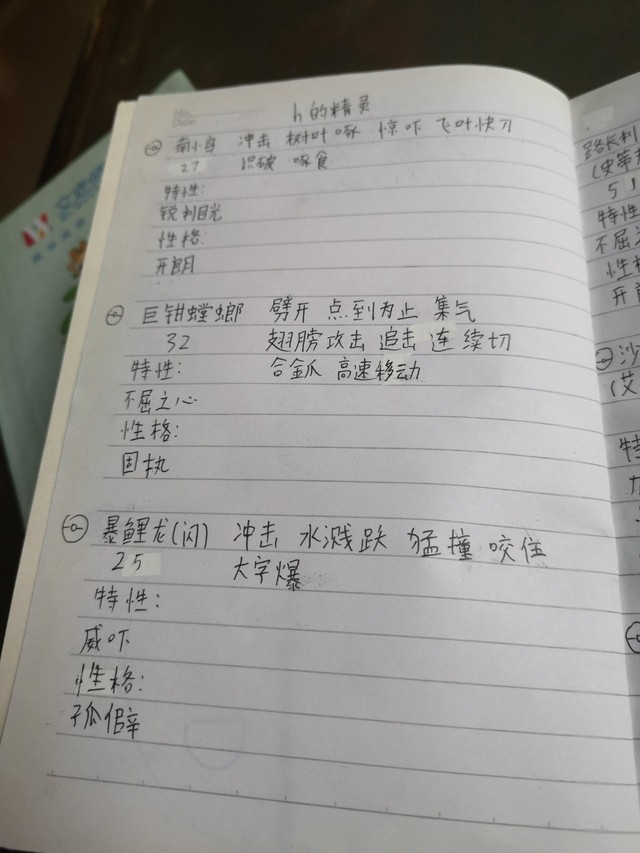 h的精灵
南小鸟 冲击 树叶 啄 惊吓 飞叶快刀
27 识破 啄食
特性:
锐利目光
性格:
开朗
巨钳螳螂 劈开 点到为止 集气
32 翅膀攻击 追击 连续切
特性: 合金爪 高速移动
不屈之心
性格:
固执
暴鲤龙(闪) 冲击 水溅跃 猛撞 咬住
25 大字爆
特性:
威吓
性格:
孤僻
51
特性
不屈之
性格
开
沙
(艾
特